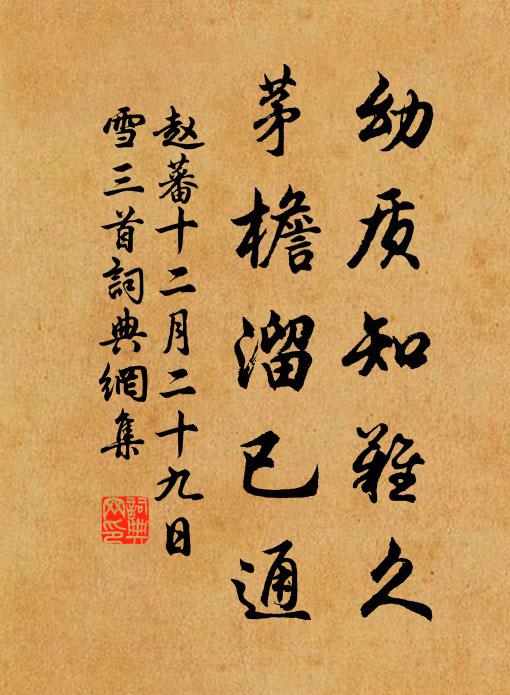 幼质知难久
茅檐溜已通
赵蕃十二月二十九日
雪三首詞典網集
詞典
网印